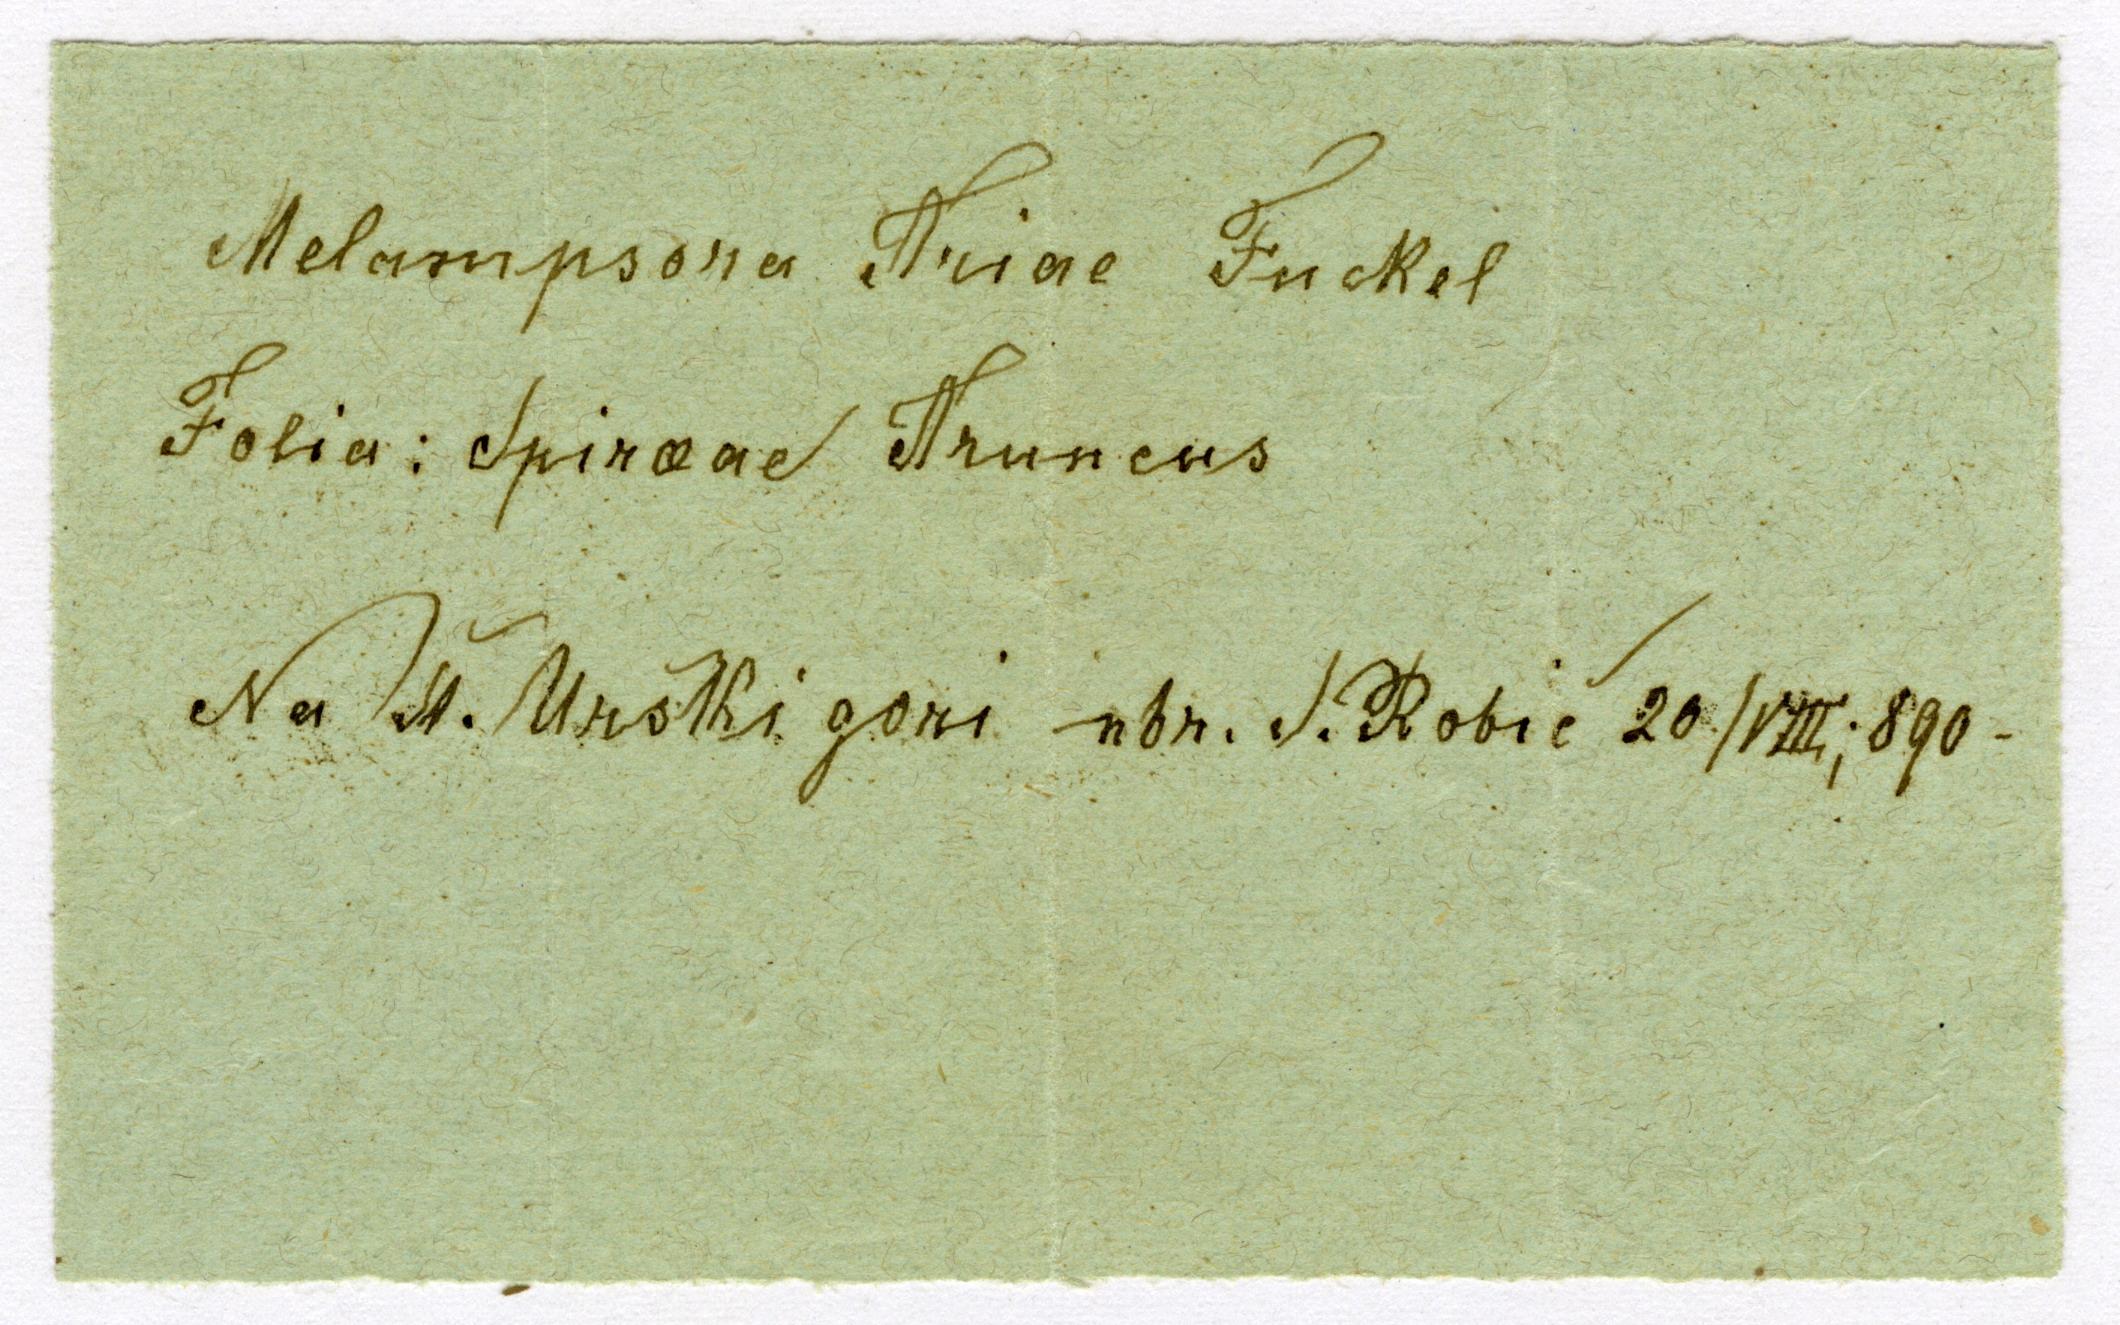 Melampsora Ariae Fuckel
Folia: Spiræae Aruncus
Na Št. Urški gori nbr. S. Robič 20/VIII; 890-